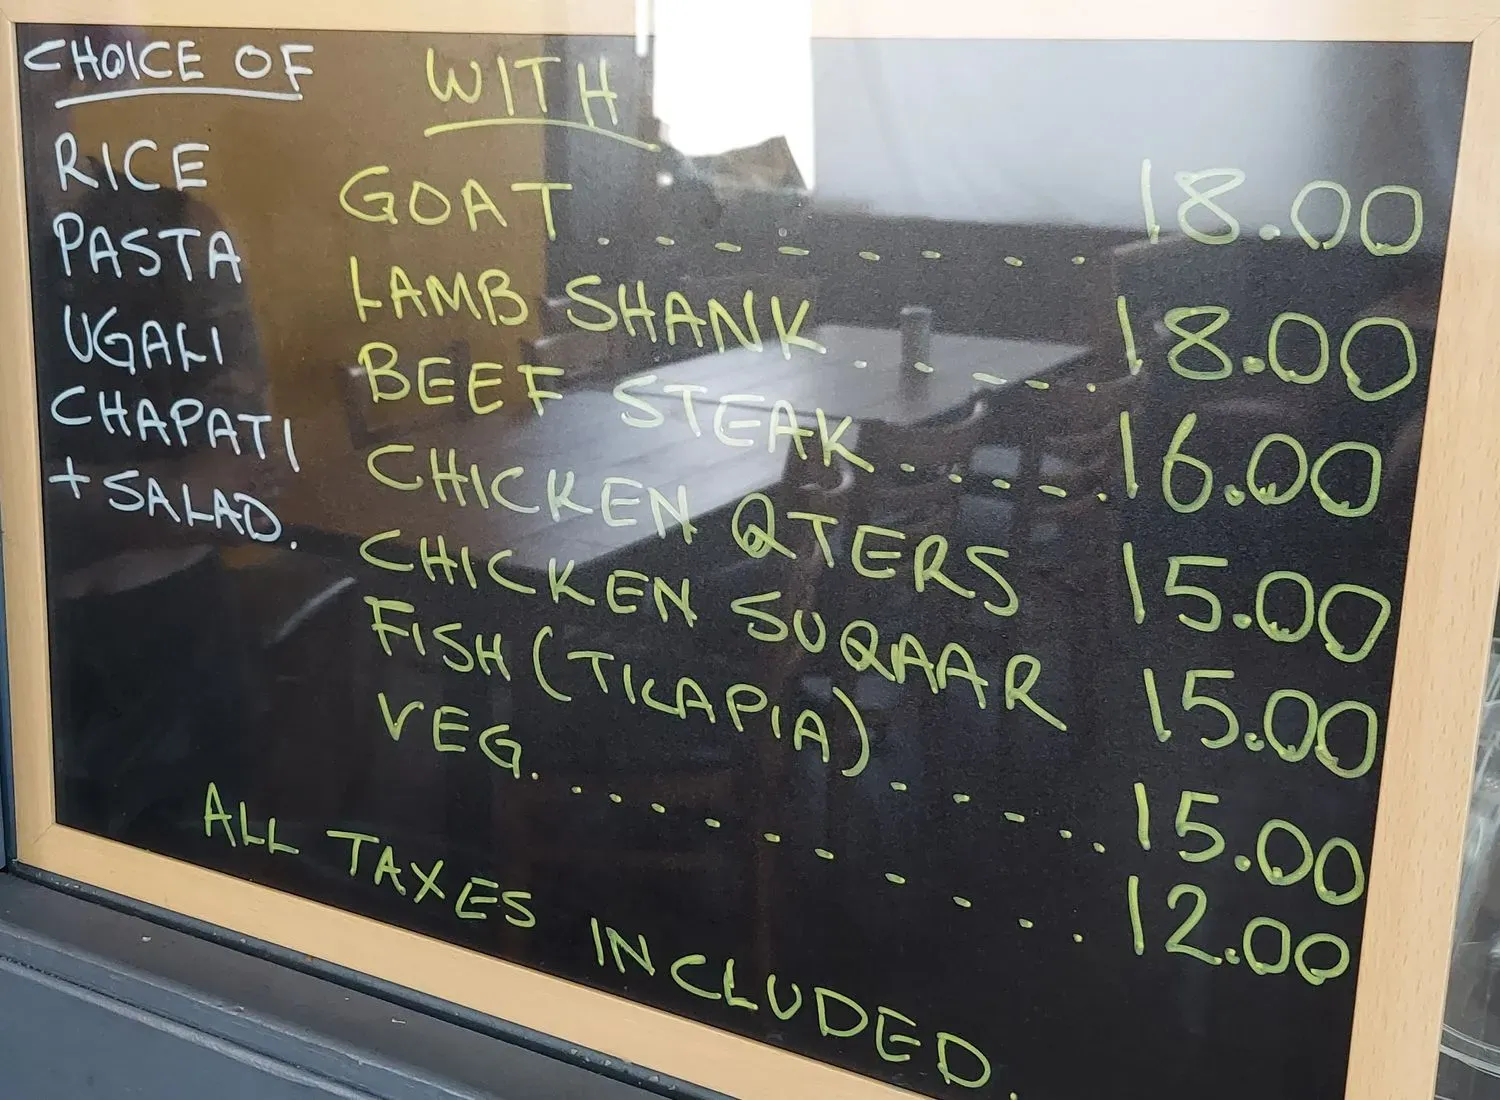 CHOICE OF
RICE
PASTA
UGALI
CHAPATI
+ SALAD.
WITH
GOAT . . - - - - - - . 18.00
LAMB SHANK . . - - - . 18.00
BEEF STEAK . . - - - . 16.00
CHICKEN QTERS 15.00
CHICKEN SUQAAR 15.00
FISH (TILAPIA) . - - . . 15.00
VEG. . . . - - - - - . . 12.00
ALL TAXES INCLUDED.